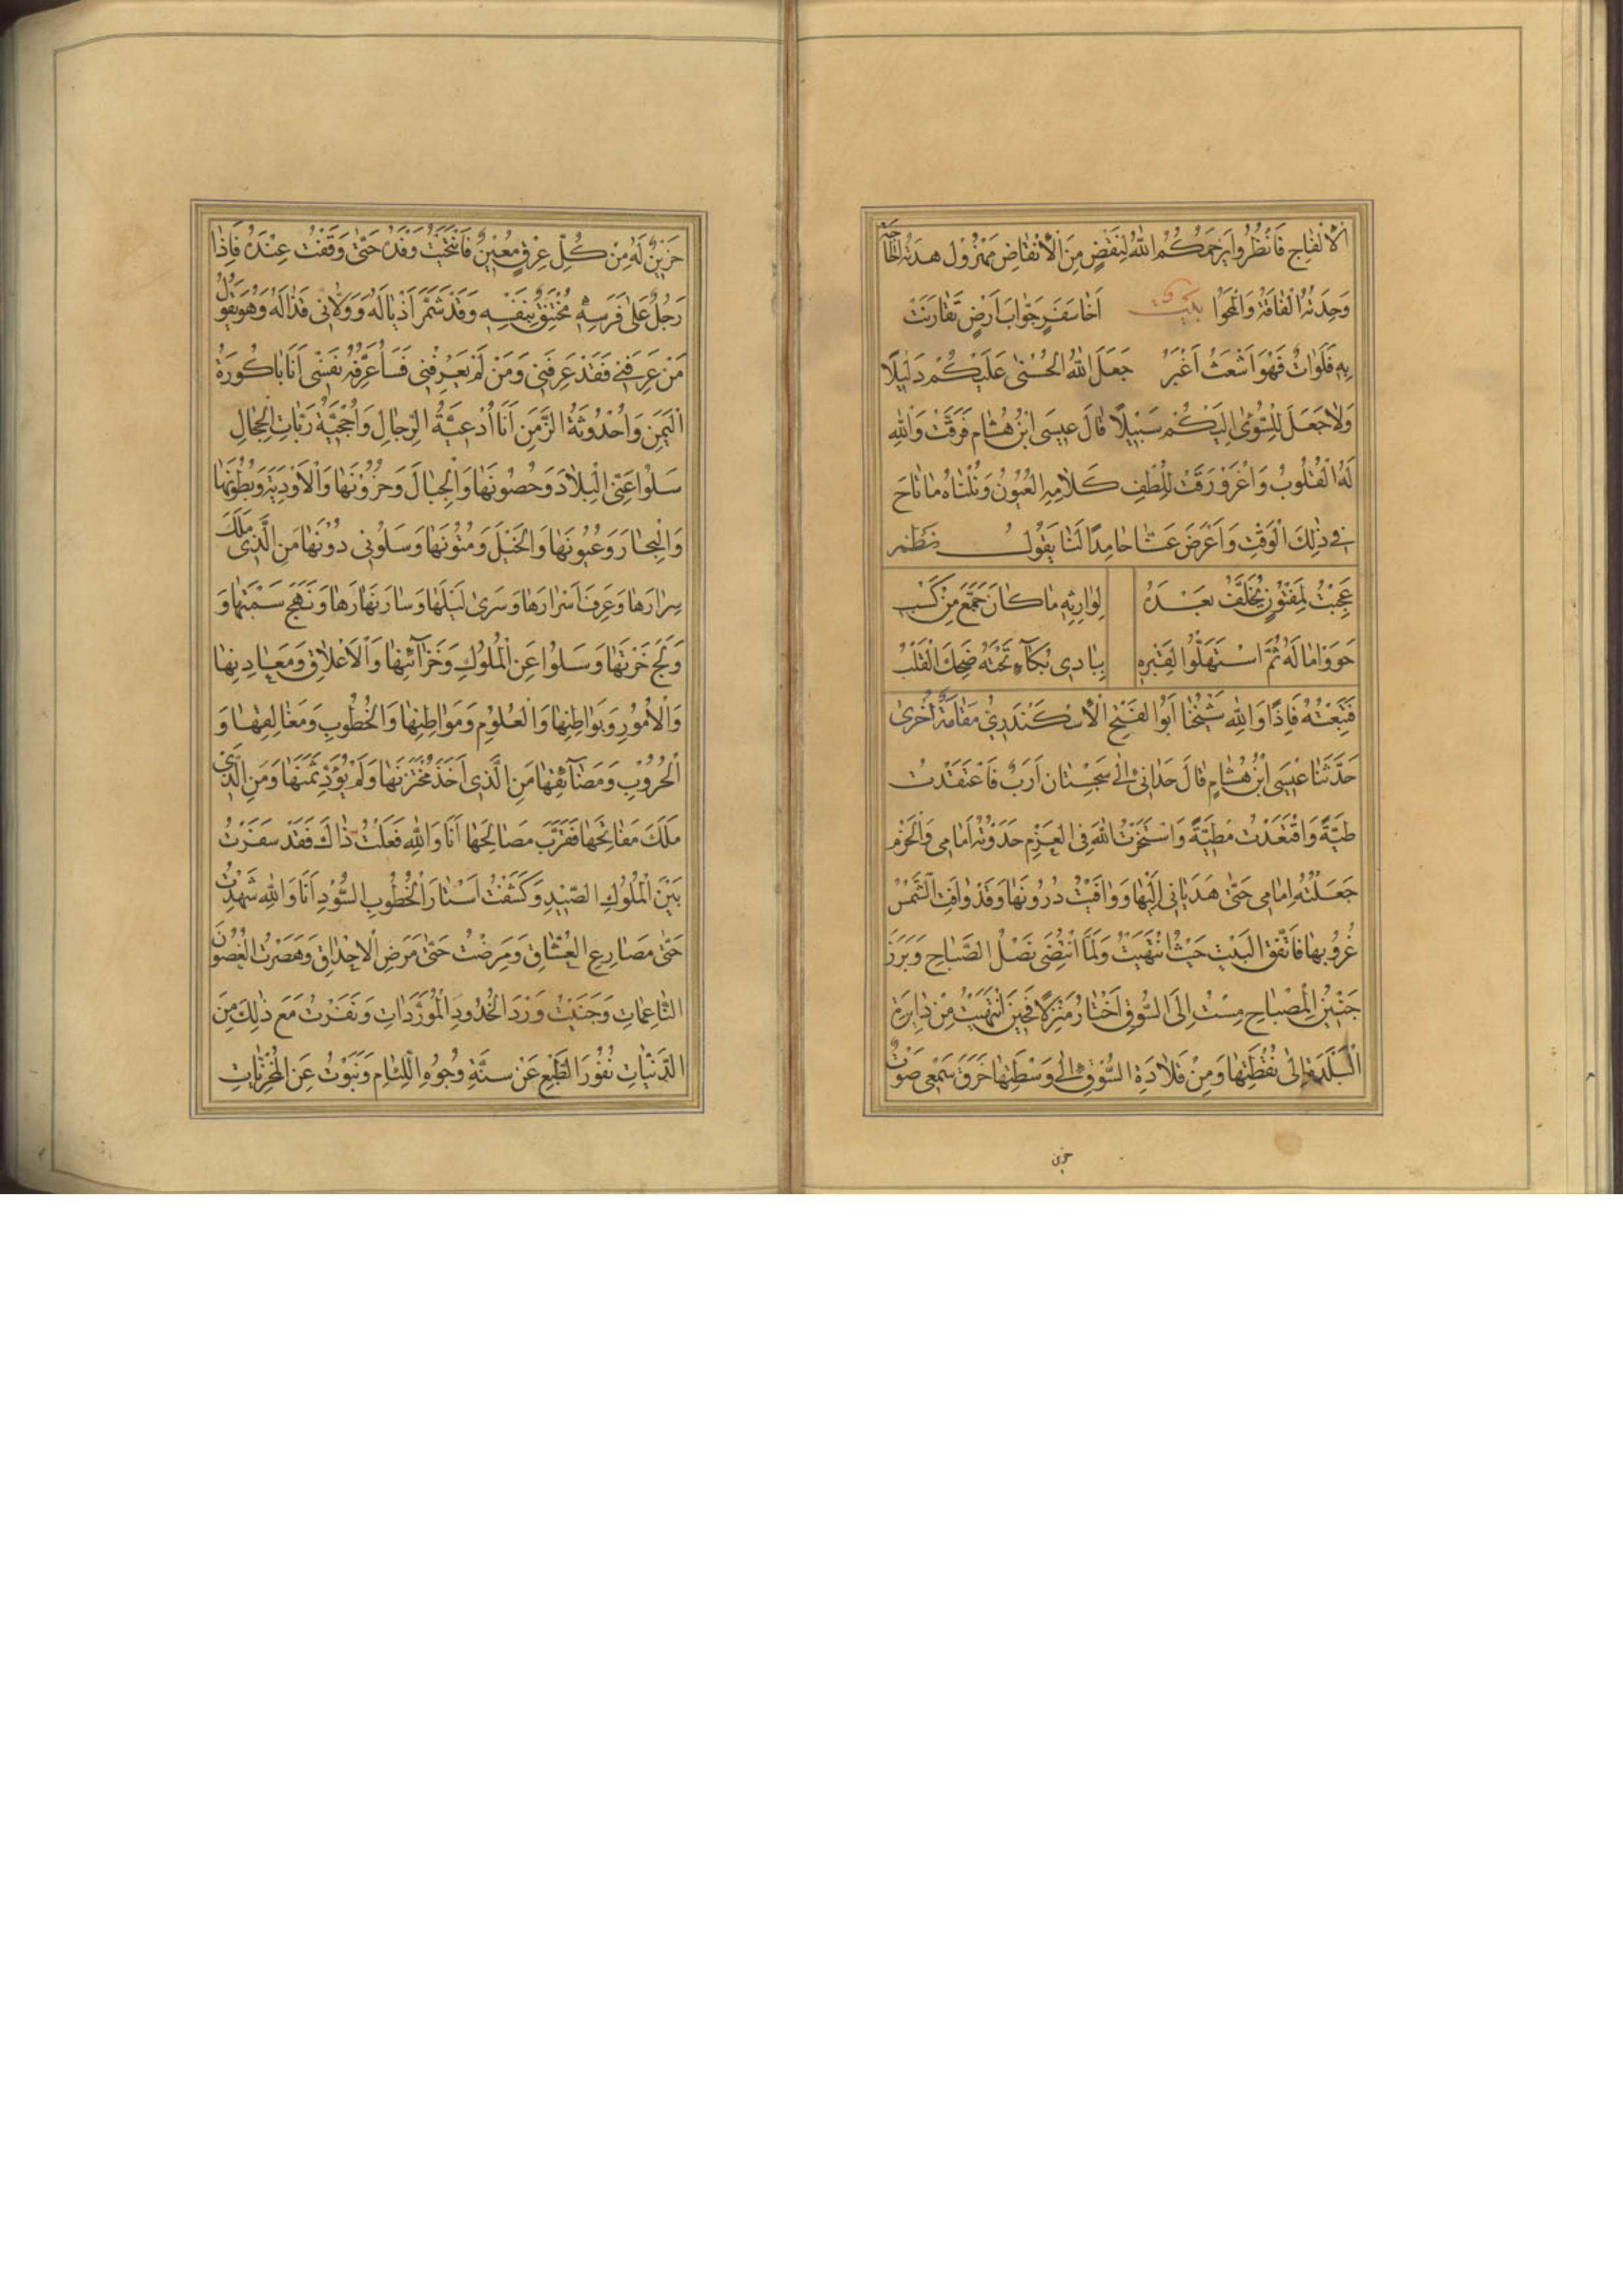 الْاَنْفَاجِ فَانْظُرُوا يَرْحَمُكُمُ اللهُ لِنَقْضٍ مِنَ الْاَنْقَاضِ مَهْزُولٍ هَدَتْهُ الْحَاجَة
وَحَدَتْهُ الْفَاقَةُ وَانْحُوا بَيْت اَخَا سَفَرٍ جَوَّابَ اَرْضٍ تَقَارَنَتْ
بِهِ فَلَوَاتٌ فَهْوَ اَشْعَثُ اَغْبَرُ جَعَلَ اللهُ الْحُسْنٰى عَلَيْكُمْ دَلِيْلًا
وَلَا جَعَلَ لِلسُّوْئٰ اِلَيْكُمْ سَبِيْلًا قَالَ عِيسَى ابْنُ هُشَام فَرَقَّتْ وَاللهِ
لَهُ الْقُلُوبُ وَاغْرَوْرَقَتْ لِلُطْفِ كَلَامِهِ الْعُيُونُ وَنُلْنَاهُ مَا تَاحَ
فِي ذٰلِكَ الْوَقْتِ وَاَعْرَضَ عَنَّا حَامِدًا لَنَا يَقُولُ نظم
عَجِبْتُ لِمَفْتُوْنٍ يُخَلِّفُ بَعْدَهُ لِوَارِثِهِ مَا كَانَ جَمَّعَ مِنْ كَسْبِ
حَوَوْا مَالَهُ ثُمَّ اسْتَهَلُّوا لِقَبْرِهِ بِبَادِي بُكَآءٍ تَحْتَهُ ضَحِكَ الْقَلْبُ
فَتَبِعْتُهُ فَاِذًا وَاللهِ شَيْخُنَا اَبُو الْفَتْحِ الْاِسْكَنْدَرِيُّ مَقَامَةٌ اُخْرٰى
حَدَّثَنَا عِيْسَى ابْنُ هُشَامٍ قَالَ حَدَانِيْ اِلٰى سَجِسْتَان اَرَبٌ فَاعْتَقَدْتُ
طِيَّةً وَاقْتَعَدْتُ مَطِيَّةً وَاسْتَخَرْتُ اللهَ فِى الْعَزْمِ حَدَوْتُهُ اَمَامِي وَالْحَزْمِ
جَعَلْتُهُ اِمَامِي حَتّٰى هَدَيَانِي اِلَيْهَا وَوَافَيْتُ دُرُوبَهَا وَقَدْ وَافَتِ الشَّمْسُ
غُرُوبَهَا فَاتَّفَقَ الْبَيْت حَيْثُ انْتَهَيْتُ وَلَمَّا انْتُضِىَ نَصْلُ الصَّبَاحِ وَبَرَزَ
جَبِيْنُ الْمِصْبَاحِ مِسْتُ اِلَى السُّوقِ اَخْتَارُ مَنْزِلًا فَحِيْنَ انْتَهَيْتُ مِنْ دَايِرَةِ
الْبَلْدَةِ اِلٰى نُقْطَتِهَا وَمِنْ قَلَادَةِ السُّوْقِ اِلٰى وَسْطَتِهَا خَرَقَ سَمْعِي صَوْتٌ
حزين
حَزِيْنٌ لَهُ مِنْ كُلِّ عِرْقٍ مُعِيْنٌ فَانْتَحَيْتُ وَفْدَهُ حَتّٰى وَقَفْتُ عِنْدَهُ فَاِذَا
رَجُلٌ عَلٰى فَرَسِهِ مُخْتَنِقٌ بِنَفَسِهِ وَقَدْ شَمَّرَ اَذْيَالَهُ وَوَلَّانِي قَذَالَهُ وَهُوَ يَقُوْلُ
مَنْ عَرَفَنِي فَقَدْ عَرَفَنِي وَمَنْ لَمْ يَعْرِفْنِي فَسَاُعَرِّفُهُ نَفْسِي اَنَا بَاكُورَةُ
الْيَمَنِ وَاُحْدُوْثَةُ الزَّمَنِ اَنَا اُدْعِيَّةُ الرِّجَالِ وَاُحْجِيَّةُ رَبَّاتِ الْحِجَالِ
سَلُوْا عَنِّي الْبِلَادَ وَحُصُونَهَا وَالْجِبَالَ وَحُزُوْنَهَا وَالْاَوْدِيَةَ وَبُطُوْنَهَا
وَالْبِحَارَ وَعُيُونَهَا وَالْخَيْلَ وَمُتُوْنَهَا وَسَلُونِي دُوْنَهَا مَنِ الَّذِي مَلَكَ
سِرَارَهَا وَعَرَفَ اَسْرَارَهَا وَسَرٰى لَيْلَهَا وَسَارَ نَهَارَهَا وَنَهَجَ سَمْتَهَا وَ
وَلَجَ حَرَّتَهَا وَسَلُوا عَنِ الْمُلُوكِ وَخَزَآئِنِهَا وَالْاَعْلَاقِ وَمَعَادِنِهَا
وَالْاُمُوْرِ وَبَوَاطِنِهَا وَالْعُلُوْمِ وَمَوَاطِنِهَا وَالْخُطُوبِ وَمَغَالِقِهَا وَ
الْحُرُوْبِ وَمَضَآئِقِهَا مَنِ الَّذِي اَخَذَ مُخْتَزَنَهَا وَلَمْ يُؤَدِّ ثَمَنَهَا وَمَنِ الَّذِي
مَلَكَ مَفَاتِحَهَا فَقَرَّبَ مَصَالِحَهَا اَنَا وَاللهِ فَعَلْتُ ذَاكَ فَقَدْ سَفَرْتُ
بَيْنَ الْمُلُوكِ الصِّيْدِ وَكَشَفْتُ اَسْتَارَ الْخُطُوبِ السُّوْدِ اَنَا وَاللهِ شَهِدْتُ
حَتّٰى مَصَارِعِ الْعُشَّاقِ وَمَرِضْتُ حَتّٰى مَرَضِ الْاَحْدَاقِ وَهَصَرْتُ الْغُصُوْنَ
النَّاعِمَاتِ وَجَنَيْتُ وَرْدَ الْخُدُودِ الْمُوَرَّدَاتِ وَنَفَرْتُ مَعَ ذٰلِكَ مِنَ
الدَّنِيَّاتِ نُفُوْرَ الطَّبْعِ عَنْ سِنَّةِ وُجُوْهِ اللِّئَامِ وَنَبَوْتُ عَنِ الْمُخْزِيَاتِ